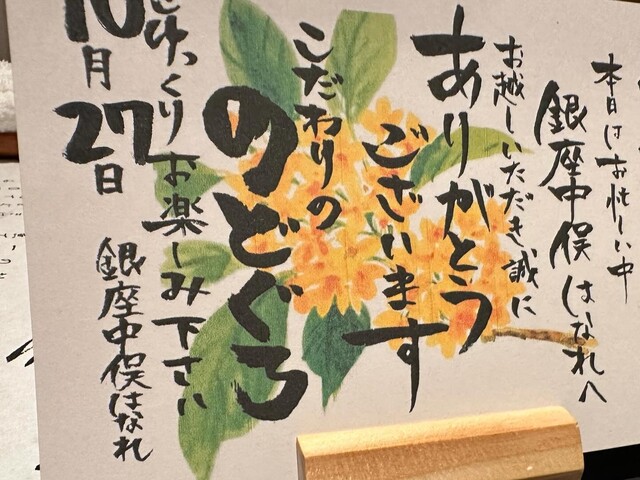 本日はお忙しい中
銀座中俣はなれへ
お越しいただき誠に
ありがとう
ございます
こだわりの
のどぐろ
ごゆっくりお楽しみ下さい
10月27日
銀座中俣はなれ